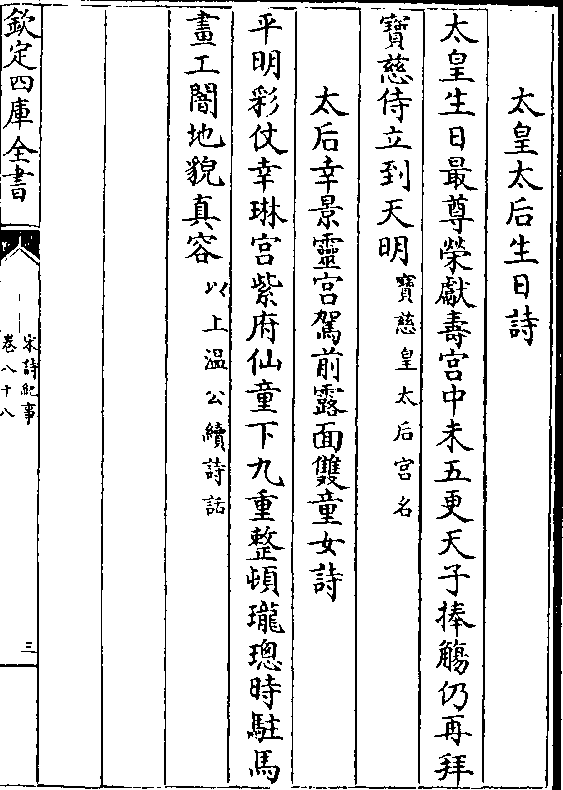 太皇太后生日詩
太皇生日最尊榮獻壽宫中未五更天子捧觴仍再拜
寶慈侍立到天明寶慈皇太后宫名
太后幸景靈宫駕前露面雙童女詩
平明彩仗幸琳宫紫府仙童下九重整頓瓏璁時駐馬
畫工闇地貌真容以上温公續詩話
欽定四庫全書
宋詩紀事
卷八十八
三